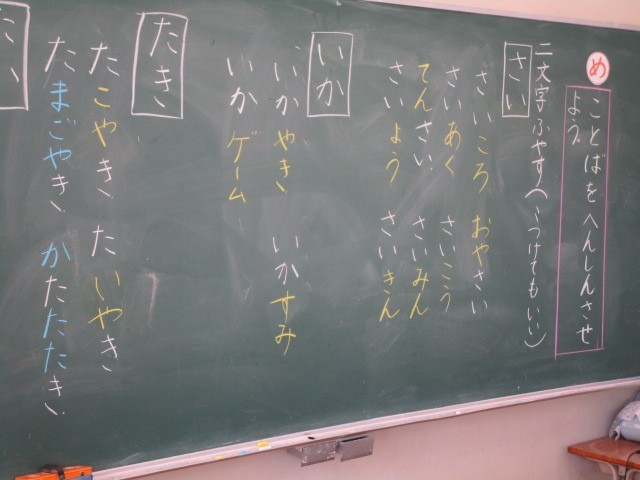 め
ことばをへんしんさせ
よう
二文字ふやす(゛つけてもいい)
さい
さいころ おやさい
さいあく さいこう
てんさい さいみん
さいよう さいきん
いか
いかやき いかすみ
いかゲーム
たき
たこやき たいやき
たまごやき かたたたき